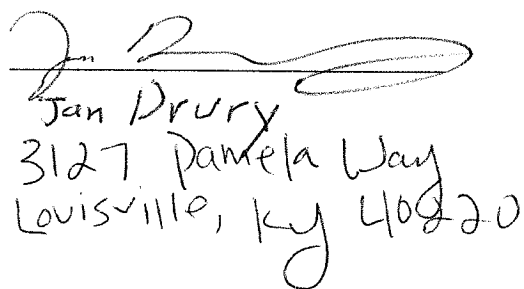 Jan Drury
3127 Pamela Way
Louisville, Ky 40220